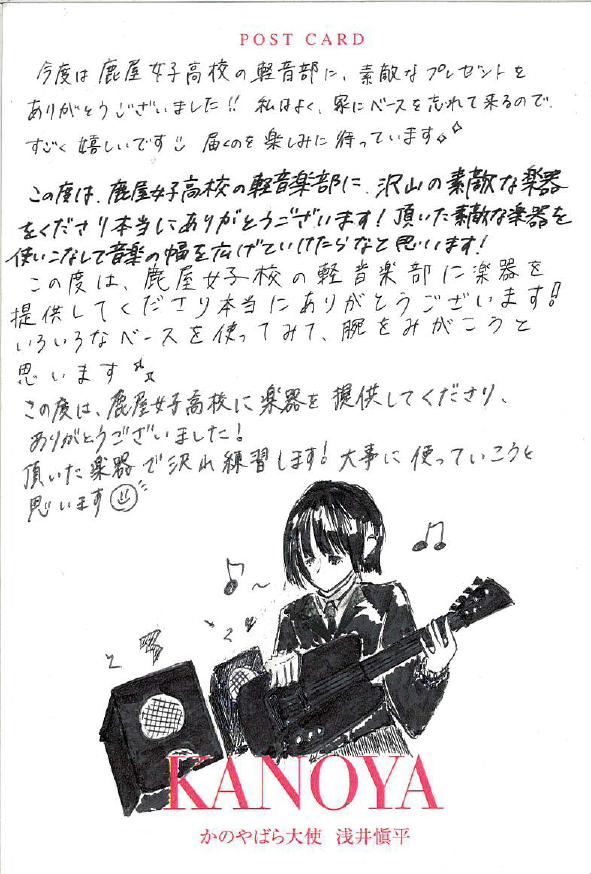 POST CARD
今度は鹿屋女子高校の軽音部に、素敵なプレゼントを
ありがとうございました!! 私はよく、家にベースを忘れて来るので、
すごく嬉しいです 届くのを楽しみに待っています
この度は、鹿屋女子高校の軽音楽部に、沢山の素敵な楽器
をくださり本当にありがとうございます!頂いた素敵な楽器を
使いこなして音楽の幅を広げていけたらなと思います!
この度は、鹿屋女子校の軽音楽部に楽器を
提供してくださり本当にありがとうございます!
いろいろなベースを使ってみて、腕をみがこうと
思います
この度は、鹿屋女子高校に楽器を提供してくださり、
ありがとうございました!
頂いた楽器で沢山練習します!大事に使っていこうと
思います
KANOYA
かのやばら大使 浅井愼平